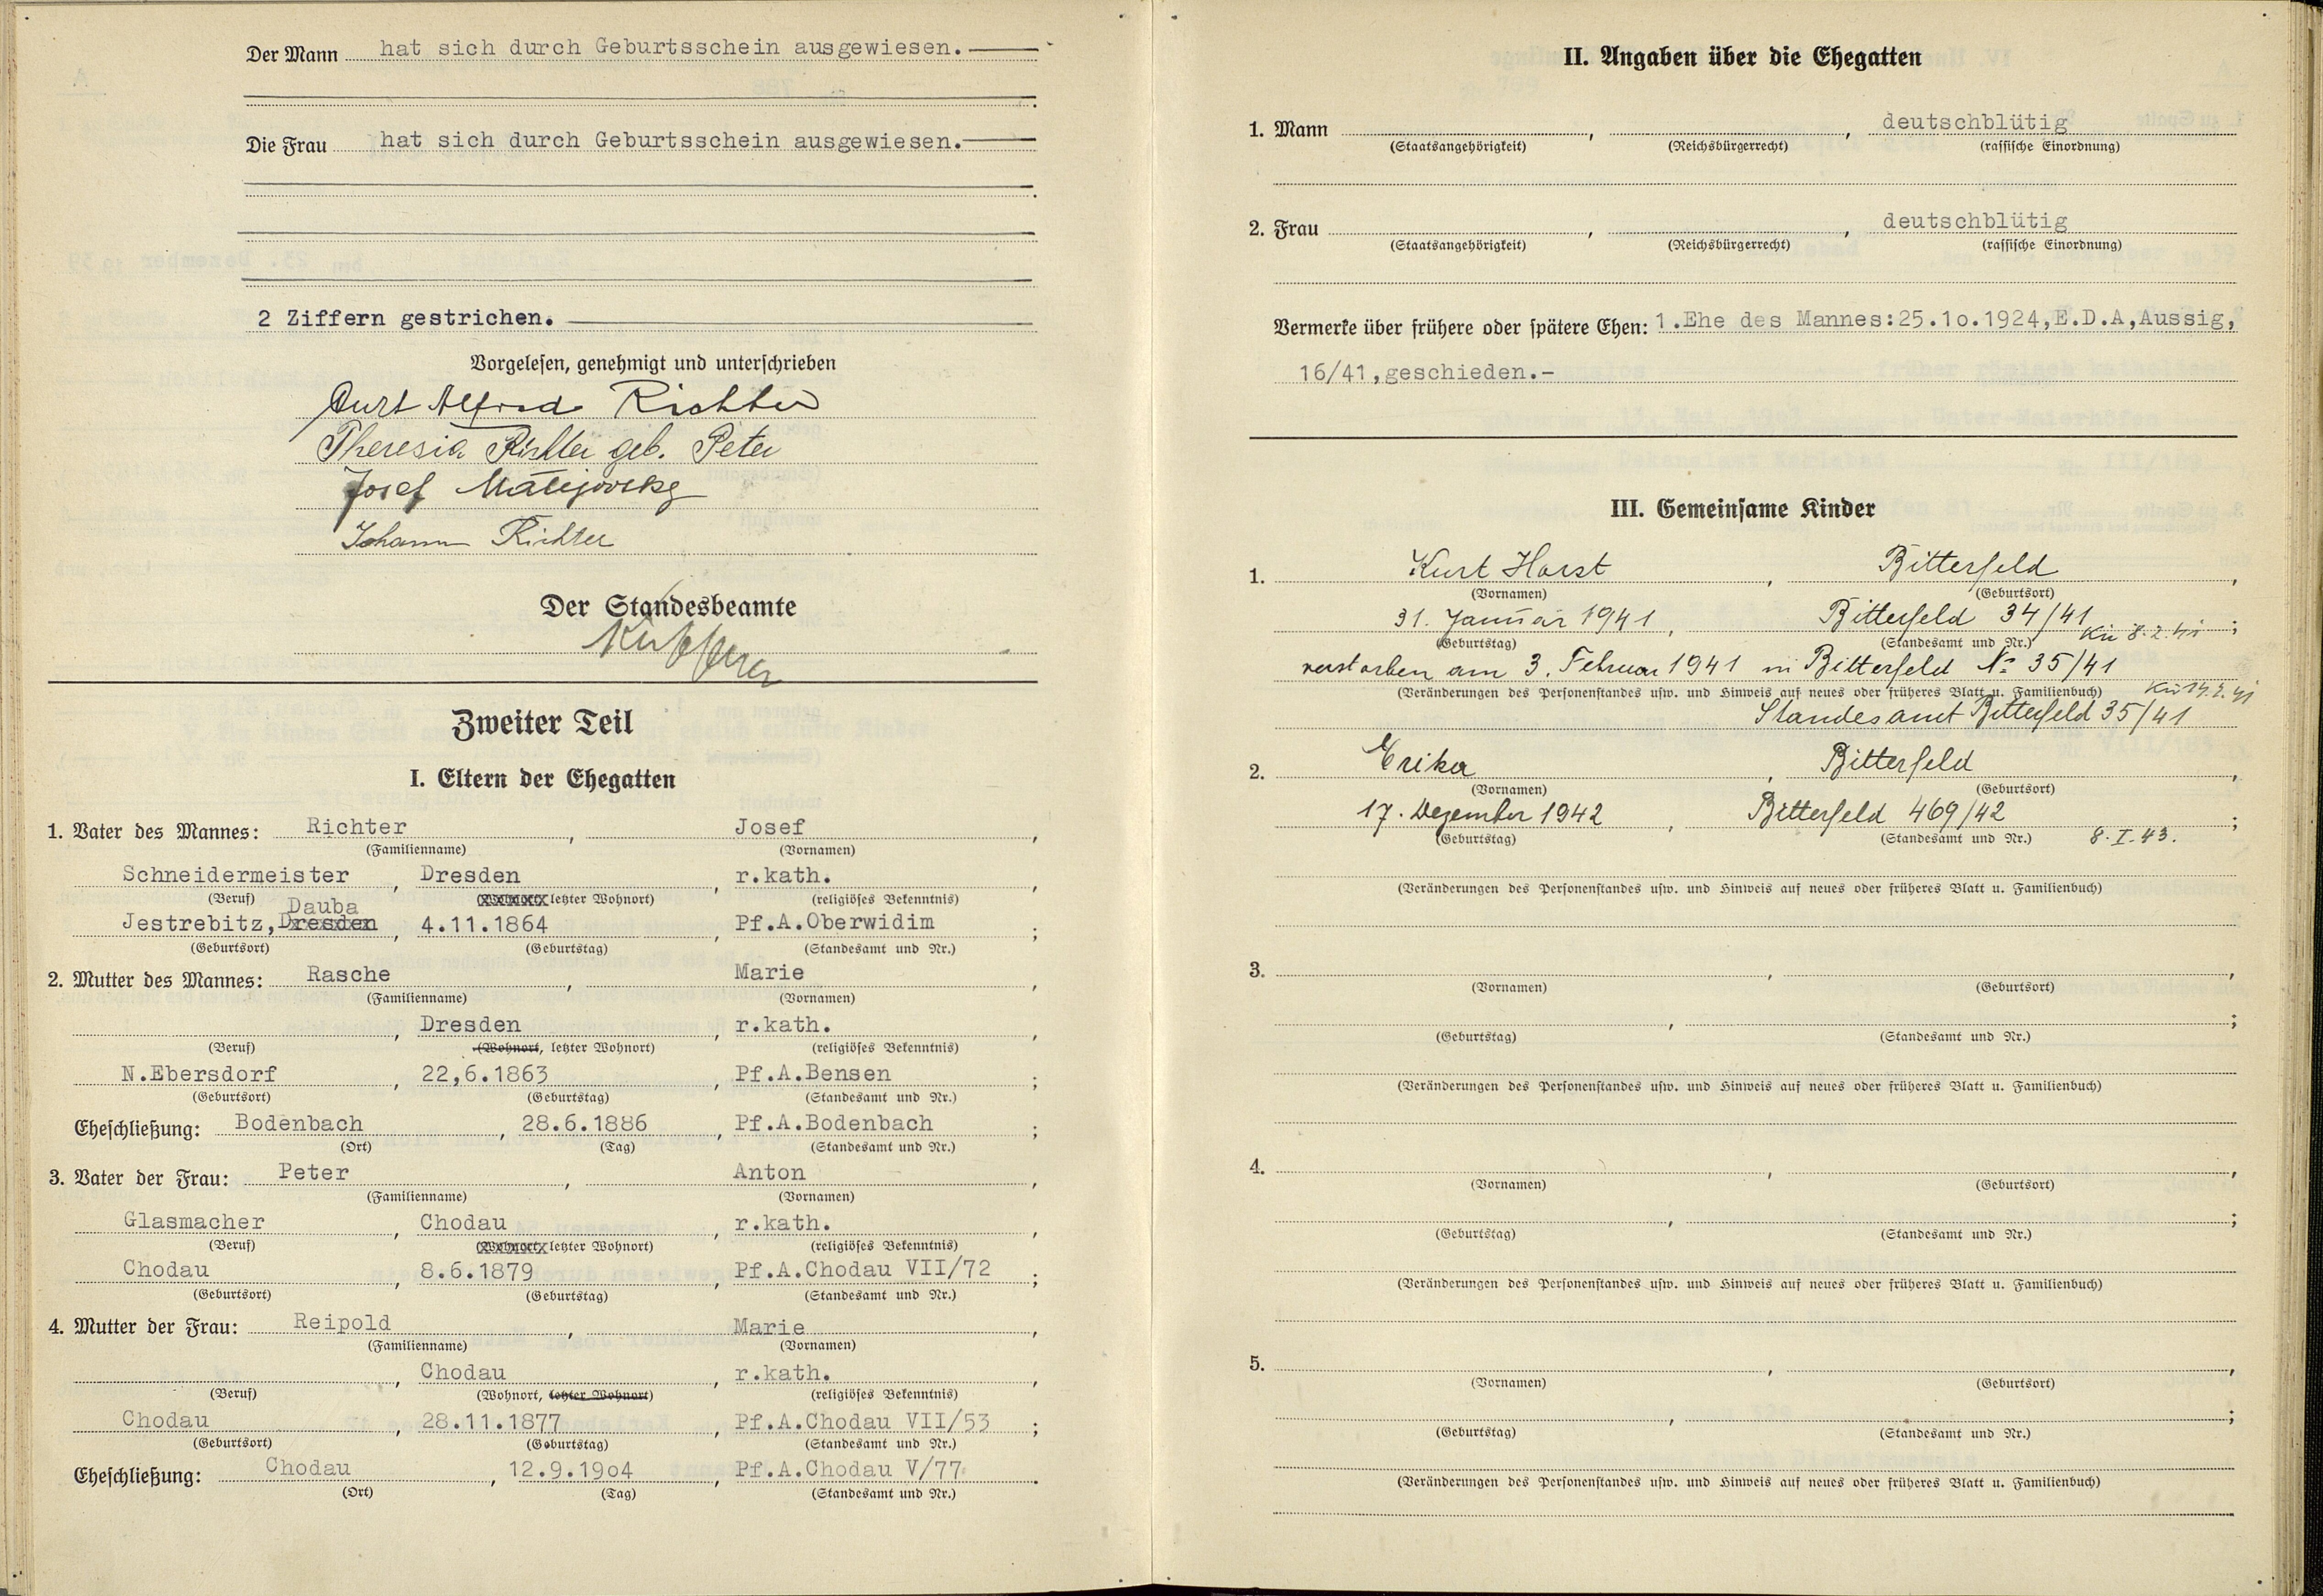 Der Mann hat sich durch Geburtsschein ausgewiesen.
Die Frau hat sich durch Geburtsschein ausgewiesen.
2 Ziffern gestrichen.
Vorgelesen, genehmigt und unterschrieben
Curt Alfred Richter
Theresia Richter geb. Peter
Josef
Johann Richter
Der Standesbeamte
Zweiter Teil
I. Eltern der Ehegatten
1. Vater des Mannes: Richter, Josef,
(Familienname) (Vornamen)
Schneidermeister, Dresden, r.kath.,
(Beruf) letzter Wohnort) (religiöses Bekenntnis)
Dauba
Jestrebitz, Dresden, 4.11.1864, Pf.A.Oberwidim;
(Geburtsort) (Geburtstag) (Standesamt und Nr.)
2. Mutter des Mannes: Rasche, Marie,
(Familienname) (Vornamen)
, Dresden, r.kath.,
(Beruf) (Wohnort, letzter Wohnort) (religiöses Bekenntnis)
N.Ebersdorf, 22,6.1863, Pf.A.Bensen;
(Geburtsort) (Geburtstag) (Standesamt und Nr.)
Eheschließung: Bodenbach, 28.6.1886, Pf.A.Bodenbach;
(Ort) (Tag) (Standesamt und Nr.)
3. Vater der Frau: Peter, Anton,
(Familienname) (Vornamen)
Glasmacher, Chodau, r.kath.,
(Beruf) (Wohnort, letzter Wohnort) (religiöses Bekenntnis)
Chodau, 8.6.1879, Pf.A.Chodau VII/72;
(Geburtsort) (Geburtstag) (Standesamt und Nr.)
4. Mutter der Frau: Reipold, Marie,
(Familienname) (Vornamen)
, Chodau, r.kath.,
(Beruf) (Wohnort, letzter Wohnort) (religiöses Bekenntnis)
Chodau, 28.11.1877, Pf.A.Chodau VII/53;
(Geburtsort) (Geburtstag) (Standesamt und Nr.)
Eheschließung: Chodau, 12.9.19o4, Pf.A.Chodau V/77.
(Ort) (Tag) (Standesamt und Nr.)
II. Angaben über die Ehegatten
1. Mann , , deutschblütig
(Staatsangehörigkeit) (Reichsbürgerrecht) (rassische Einordnung)
2. Frau , , deutschblütig
(Staatsangehörigkeit) (Reichsbürgerrecht) (rassische Einordnung)
Vermerke über frühere oder spätere Ehen: 1.Ehe des Mannes:25.1o.1924,E.D.A,Aussig,
16/41,geschieden.-
III. Gemeinsame Kinder
1. Kurt Horst, Bitterfeld,
(Vornamen) (Geburtsort)
31. Januar 1941, Bitterfeld 34/41 Kü 8.2.41;
(Geburtstag) (Standesamt und Nr.)
verstorben am 3. Februar 1941 in Bitterfeld № 35/41
(Veränderungen des Personenstandes usw. und Hinweis auf neues oder früheres Blatt u. Familienbuch)
Standesamt Bitterfeld 35/41
2. Erika, Bitterfeld,
(Vornamen) (Geburtsort)
17. Dezember 1942, Bitterfeld 469/42;
(Geburtstag) (Standesamt und Nr.) 8.I.43.
(Veränderungen des Personenstandes usw. und Hinweis auf neues oder früheres Blatt u. Familienbuch)
3. , ,
(Vornamen) (Geburtsort)
, ;
(Geburtstag) (Standesamt und Nr.)
(Veränderungen des Personenstandes usw. und Hinweis auf neues oder früheres Blatt u. Familienbuch)
4. , ,
(Vornamen) (Geburtsort)
, ;
(Geburtstag) (Standesamt und Nr.)
(Veränderungen des Personenstandes usw. und Hinweis auf neues oder früheres Blatt u. Familienbuch)
5. , ,
(Vornamen) (Geburtsort)
, ;
(Geburtstag) (Standesamt und Nr.)
(Veränderungen des Personenstandes usw. und Hinweis auf neues oder früheres Blatt u. Familienbuch)